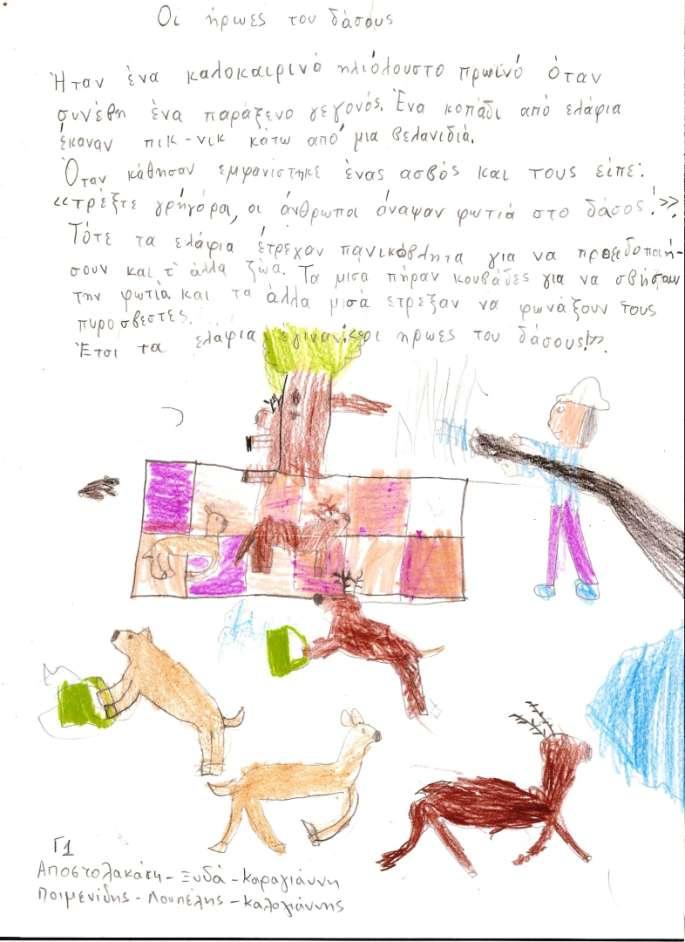 Οι ήρωες του δάσους
Ήταν ένα καλοκαιρινό ηλιόλουστο πρωινό όταν
συνέβη ένα παράξενο γεγονός. Ένα κοπάδι από ελάφια
έκαναν πικ-νικ κάτω από μια βελανιδιά.
Όταν κάθησαν εμφανίστηκε ένας ασβός και τους είπε:
«τρέξτε γρήγορα, οι άνθρωποι άναψαν φωτιά στο δάσος!»
Τότε τα ελάφια έτρεχαν πανικόβλητα για να προειδοποιή-
σουν και τ' άλλα ζώα. Τα μισα πήραν κουβάδες για να σβήσουν
την φωτία και τα άλλα μισά ετρεξαν να φωνάξουν τους
πυροσβεστες.
Έτσι τα ελάφια έγιναν οι ηρωες του δάσους!».
Γ1
Αποστολακάκη - Ξυδά - Καραγιάννη
Ποιμενίδης - Λουπέλης - Καλογιάννης